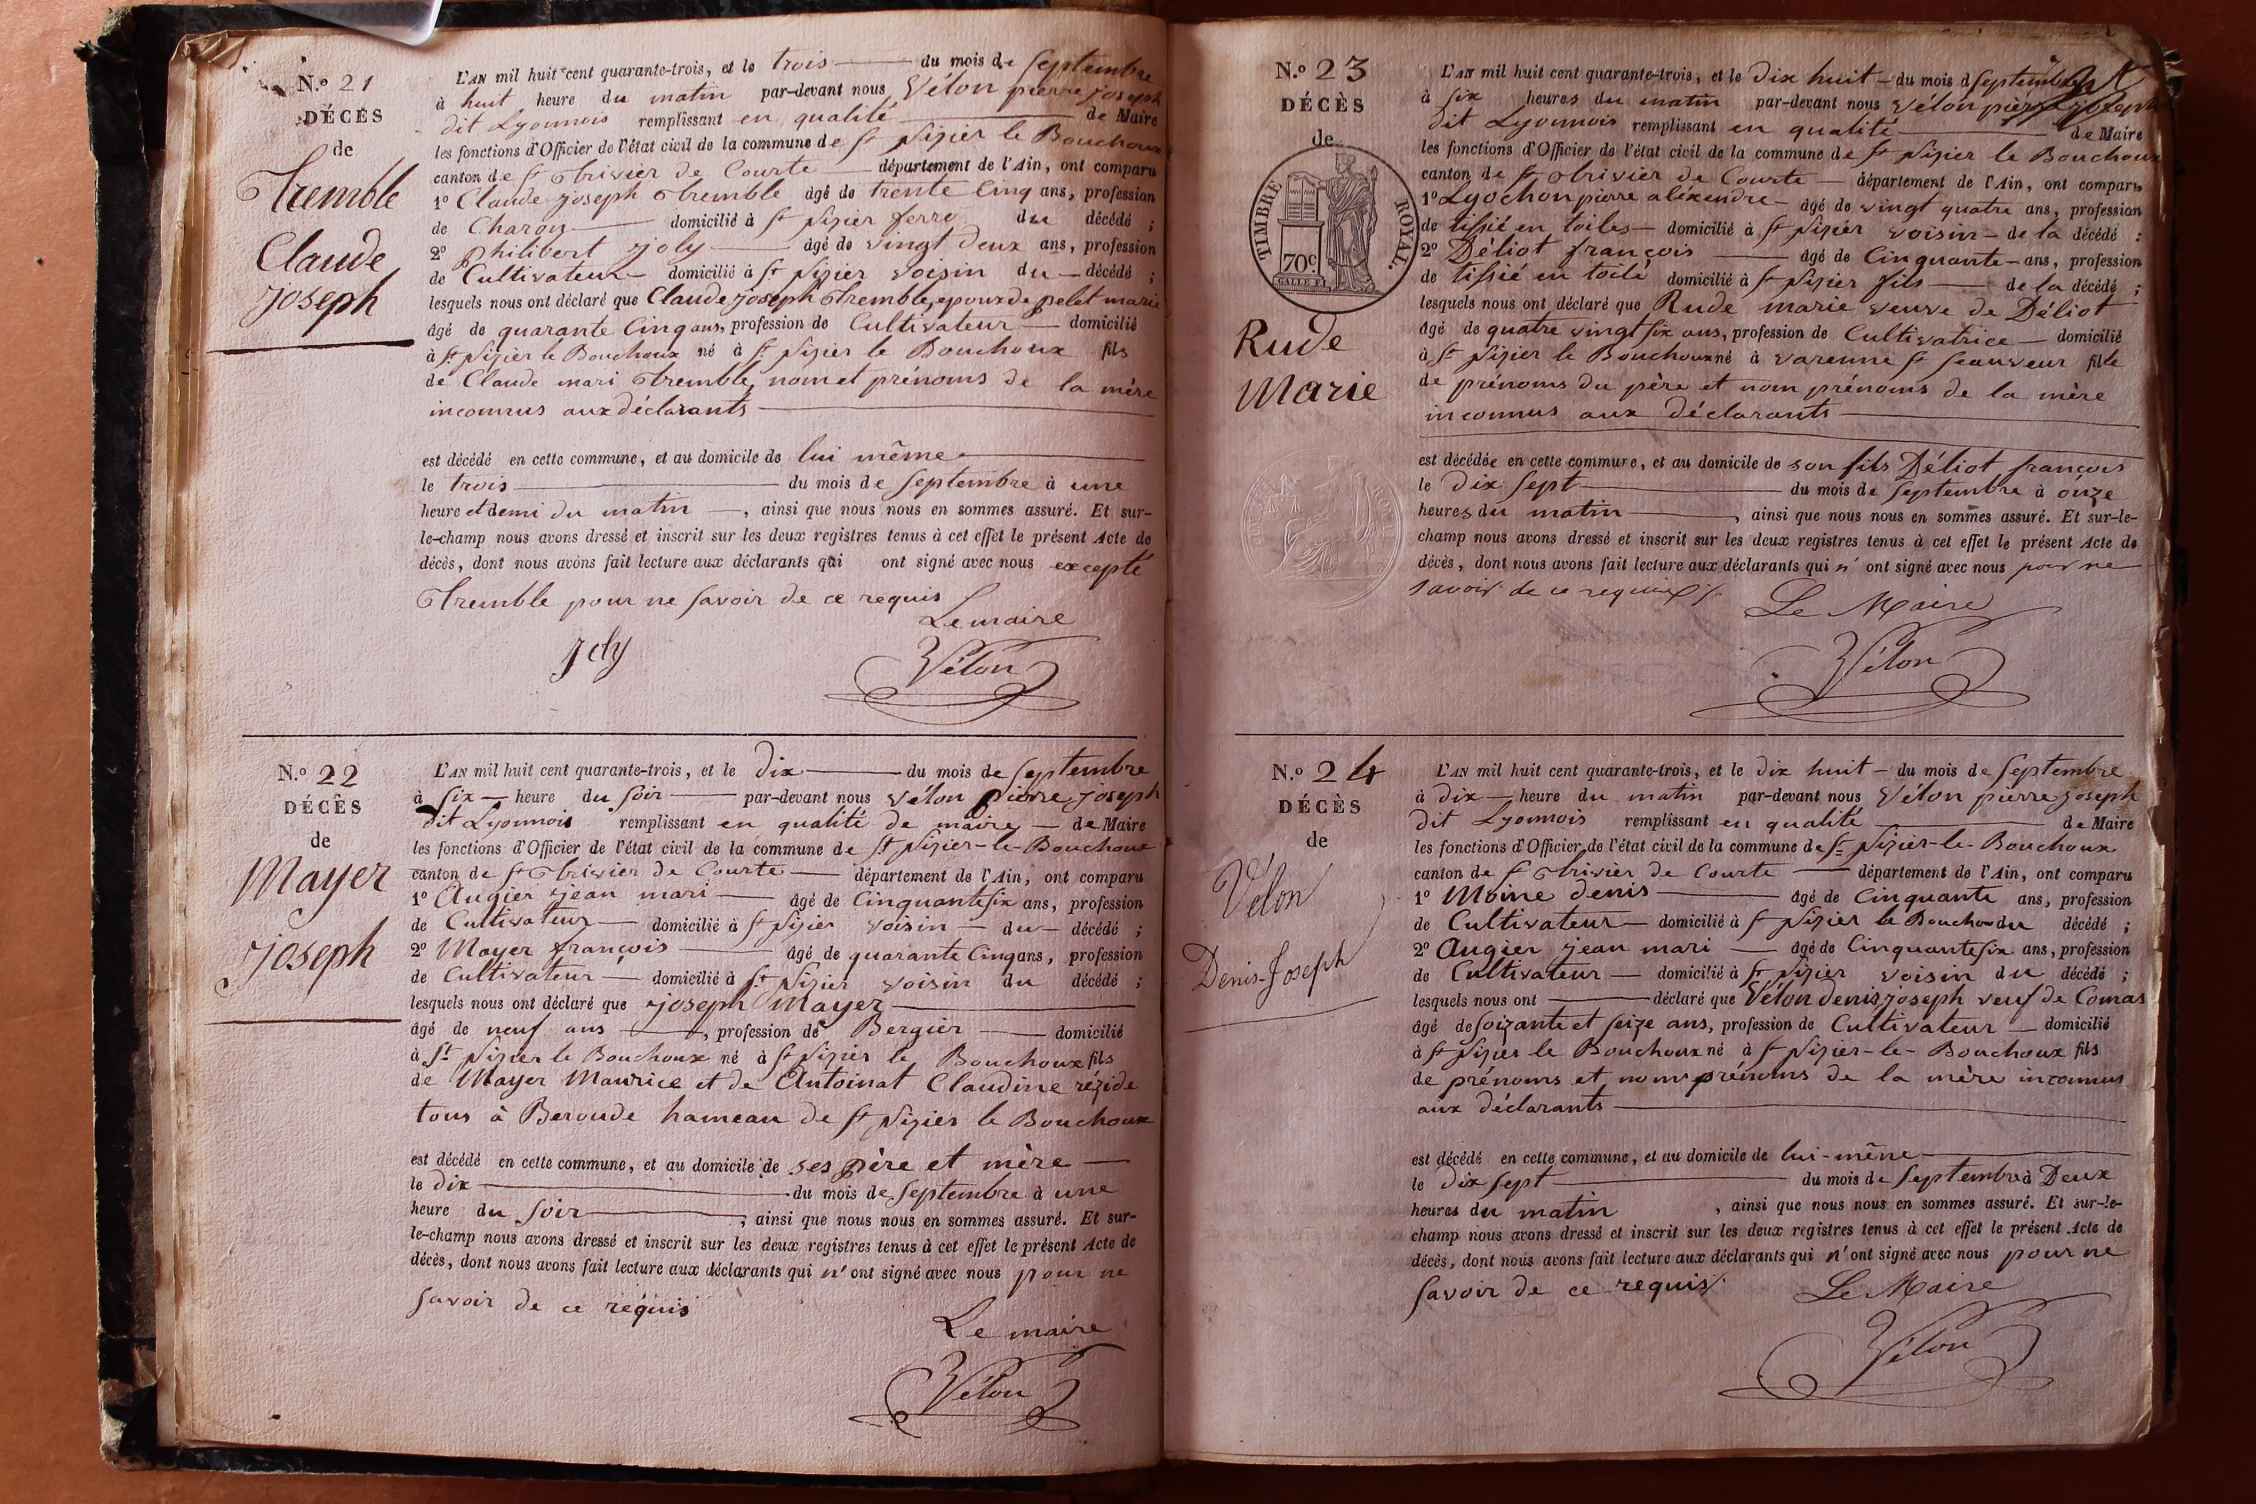 N.º 21
DÉCÈS
de
Tremble
Claude
joseph
L'AN mil huit cent quarante-trois, et le trois du mois de Septembre
à huit heure du matin par-devant nous Vélon pierre joseph
dit Lyonnois remplissant en qualité de Maire
les fonctions d'Officier de l'état civil de la commune de St Nizier le Bouchoux
canton de St Trivier de Courte département de l'Ain, ont comparu
1º Claude joseph Tremble âgé de trente Cinq ans, profession
de Charon domicilié à St Nizier du décédé ;
2º Philibert joly âgé de vingt deux ans, profession
de Cultivateur domicilié à St Nizier voisin du décédé ;
lesquels nous ont déclaré que Claude joseph Tremble, epoux de pelet marie
âgé de quarante Cinq ans, profession de Cultivateur domicilié
à St Nizier le Bouchoux né à St Nizier le Bouchoux fils
de Claude mari Tremble, nom et prénoms de la mère
inconnus aux déclarants
est décédé en cette commune, et au domicile de lui même
le trois du mois de Septembre à une
heure et demi du matin , ainsi que nous nous en sommes assuré. Et sur-
le-champ nous avons dressé et inscrit sur les deux registres tenus à cet effet le présent Acte de
décès, dont nous avons fait lecture aux déclarants qui ont signé avec nous excepté
Tremble pour ne savoir de ce requis
Le maire
joly
Vélon
N.º 22
DÉCÈS
de
Mayer
joseph
L'AN mil huit cent quarante-trois, et le Dix du mois de Septembre
à six heure du soir par-devant nous Vélon Pierre joseph
dit Lyonnois remplissant en qualité de maire de Maire
les fonctions d'Officier de l'état civil de la commune de St Nizier-le-Bouchoux
canton de St Trivier de Courte département de l'Ain, ont comparu
1º Augier jean mari âgé de Cinquante six ans, profession
de Cultivateur domicilié à St Nizier voisin du décédé ;
2º Mayer françois âgé de quarante Cinq ans, profession
de Cultivateur domicilié à St Nizier voisin du décédé ;
lesquels nous ont déclaré que joseph Mayer
âgé de neuf ans , profession de Bergier domicilié
à St Nizier le Bouchoux né à St Nizier le Bouchoux fils
de Mayer Maurice et de Antoinat Claudine rézide
tous à Beroude hameau de St Nizier le Bouchoux
est décédé en cette commune, et au domicile de ses père et mère
le dix du mois de Septembre à une
heure du soir , ainsi que nous nous en sommes assuré. Et sur-
le-champ nous avons dressé et inscrit sur les deux registres tenus à cet effet le présent Acte de
décès, dont nous avons fait lecture aux déclarants qui n' ont signé avec nous pour ne
savoir de ce requis
Le maire
Vélon
N.º 23
DÉCÈS
de
TIMBRE ROYAL.
70c.
Rude
Marie
L'AN mil huit cent quarante-trois, et le Dix huit du mois d Septembre
à six heures du matin par-devant nous Vélon pierre joseph
dit Lyonnois remplissant en qualité de Maire
les fonctions d'Officier de l'état civil de la commune de St Nizier le Bouchoux
canton de St Trivier de Courte département de l'Ain, ont comparu
1º Lyochon pierre aléxendre âgé de vingt quatre ans, profession
de tissié en toiles domicilié à St Nizier voisin de la décédé ;
2º Déliot françois âgé de Cinquante ans, profession
de tissié en toile domicilié à St Nizier fils de la décédé ;
lesquels nous ont déclaré que Rude marie veuve de Déliot
âgé de quatre vingt six ans, profession de Cultivatrice domicilié
à St Nizier le Bouchoux né à varenne St Seauveur fille
de prénoms du père et nom prénoms de la mère
inconnus aux déclarants
est décédée en cette commune, et au domicile de son fils Déliot françois
le Dix sept du mois de Septembre à onze
heures du matin , ainsi que nous nous en sommes assuré. Et sur-le-
champ nous avons dressé et inscrit sur les deux registres tenus à cet effet le présent Acte de
décès, dont nous avons fait lecture aux déclarants qui n' ont signé avec nous pour ne
savoir de ce requis
Le Maire
Vélon
N.º 24
DÉCÈS
de
Velon
Denis-Joseph
L'AN mil huit cent quarante-trois, et le Dix huit du mois de Septembre
à dix heure du matin par-devant nous Vélon pierre joseph
dit Lyonnois remplissant en qualité de Maire
les fonctions d'Officier de l'état civil de la commune de St Nizier-le-Bouchoux
canton de St Trivier de Courte département de l'Ain, ont comparu
1º Moine denis âgé de Cinquante ans, profession
de Cultivateur domicilié à St Nizier le Bouchou du décédé ;
2º Augier jean mari âgé de Cinquante six ans, profession
de Cultivateur domicilié à St Nizier voisin du décédé ;
lesquels nous ont déclaré que Vélon denis joseph veuf de Comas
âgé de soizante et seize ans, profession de Cultivateur domicilié
à St Nizier le Bouchoux né à St Nizier-le-Bouchoux fils
de prénoms et nom prénoms de la mère inconnus
aux déclarants
est décédé en cette commune, et au domicile de lui-même
le Dix sept du mois de Septembre à Deux
heures du matin , ainsi que nous nous en sommes assuré. Et sur-le-
champ nous avons dressé et inscrit sur les deux registres tenus à cet effet le présent Acte de
décès, dont nous avons fait lecture aux déclarants qui n' ont signé avec nous pour ne
savoir de ce requis
Le Maire
Vélon